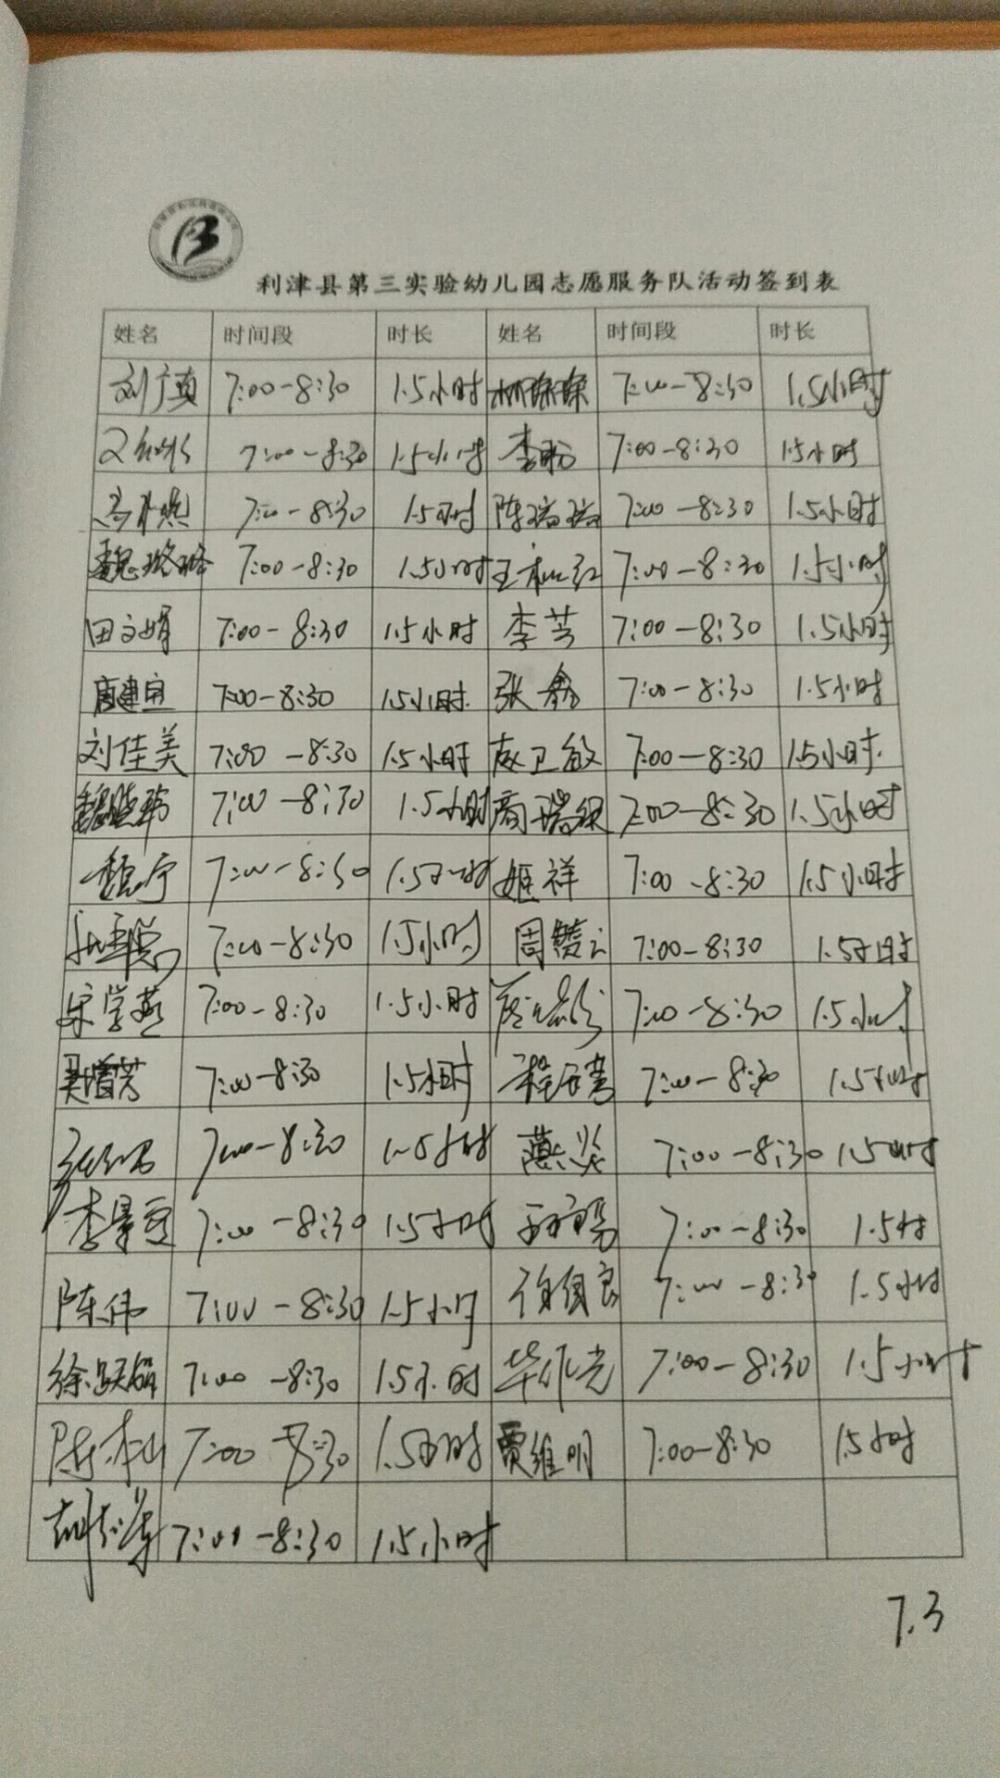 利津县第三实验幼儿园志愿服务队活动签到表
姓名 时间段 时长 姓名 时间段 时长
刘广真 7:00-8:30 1.5小时 7:00-8:30 1.5小时
7:00-8:30 1.5小时 李盼 7:00-8:30 1.5小时
7:00-8:30 1.5小时 陈瑞瑞 7:00-8:30 1.5小时
魏璐璐 7:00-8:30 1.5小时 7:00-8:30 1.5小时
田文娟 7:00-8:30 1.5小时 李芸 7:00-8:30 1.5小时
唐建宜 7:00-8:30 1.5小时 张鑫 7:00-8:30 1.5小时
刘佳美 7:00-8:30 1.5小时 赵卫敏 7:00-8:30 1.5小时
魏晓玮 7:00-8:30 1.5小时 7:00-8:30 1.5小时
魏宁 7:00-8:30 1.5小时 姬祥 7:00-8:30 1.5小时
7:00-8:30 1.5小时 7:00-8:30 1.5小时
宋学燕 7:00-8:30 1.5小时 7:00-8:30 1.5小时
吴增芳 7:00-8:30 1.5小时 7:00-8:30 1.5小时
7:00-8:30 1.5小时 7:00-8:30 1.5小时
7:00-8:30 1.5小时 7:00-8:30 1.5时
陈伟 7:00-8:30 1.5小时 7:00-8:30 1.5小时
7:00-8:30 1.5小时 7:00-8:30 1.5小时
7:00-8:30 1.5小时 贾维明 7:00-8:30 1.5小时
7:00-8:30 1.5小时
7.3